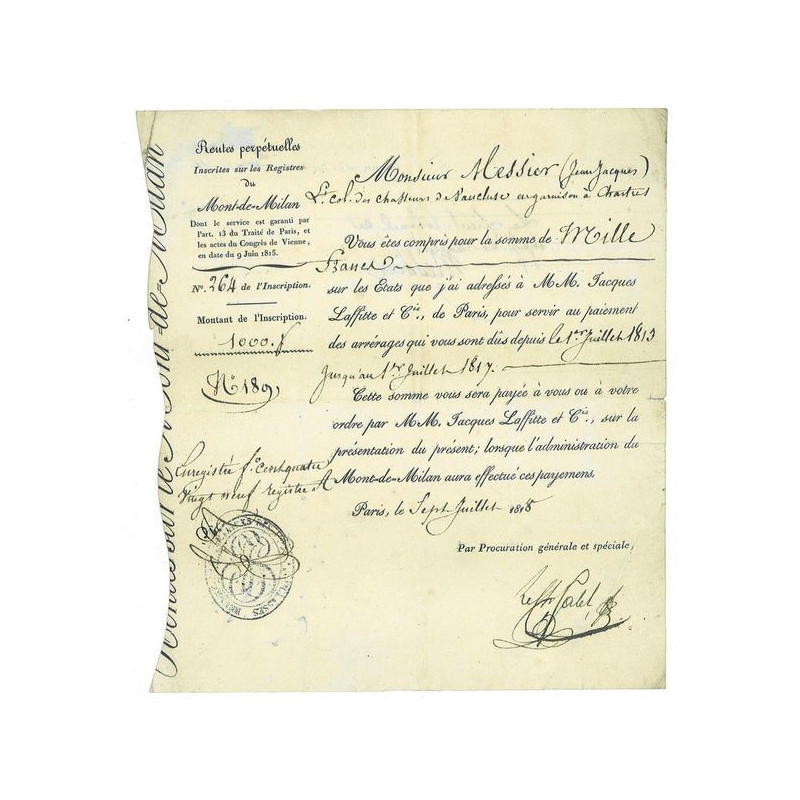 Rentes perpétuelles
Inscrites sur les Registres
du
Mont-de-Milan
Dont le service est garanti par
l'art. 13 du Traité de Paris, et
les actes du Congrès de Vienne,
en date du 9 Juin 1815.
N°. 264 de l'Inscription.
Montant de l'Inscription.
1000. f
N° 189
Enregistré f° Cent quatre
Vingt neuf registre A
Monsieur Messier (Jean Jacques)
Lt. Col. des Chasseurs de Vaucluse en garnison à Chartres
Vous êtes compris pour la somme de Mille
Francs
sur les Etats que j'ai adressés à MM. Jacques
Laffitte et Cie., de Paris, pour servir au paiement
des arrérages qui vous sont dûs depuis le 1er Juillet 1813
Jusqu'au 1er Juillet 1817.
Cette somme vous sera payée à vous ou à votre
ordre par MM. Jacques Laffitte et Cie., sur la
présentation du présent; lorsque l'administration du
Mont-de-Milan aura effectué ces payemens.
Paris, le Sept Juillet 1818
Par Procuration générale et spéciale,